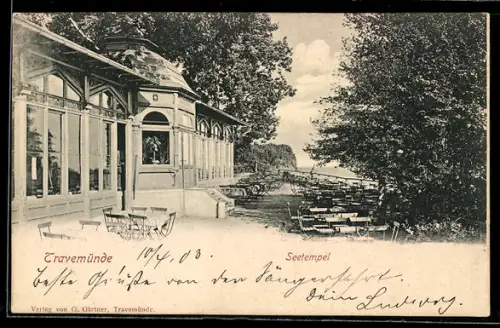 Travemünde
Seetempel
10/4. 03.
beste Grüße von der Sängerfahrt.
Dein Ludwig.
Verlag von G. Gärtner, Travemünde.